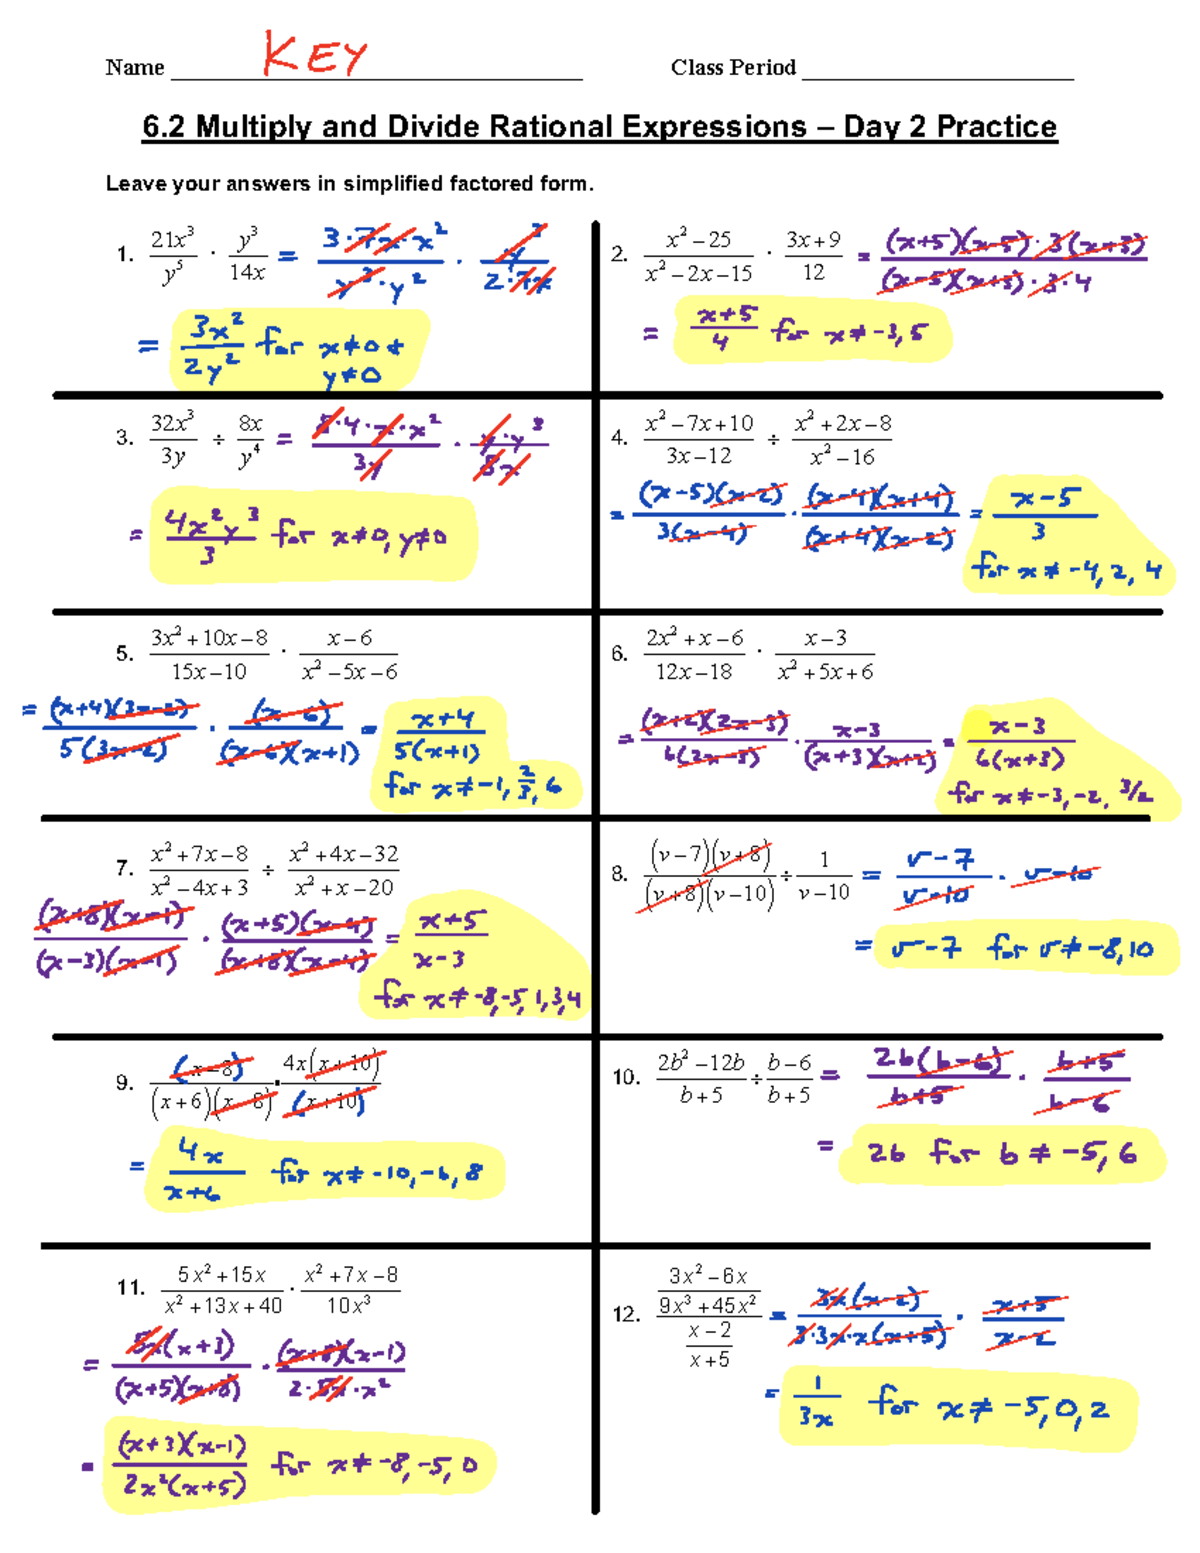 Name KEY Class Period
6.2 Multiply and Divide Rational Expressions – Day 2 Practice
Leave your answers in simplified factored form.
1. 21x³/y⁵ · y³/14x = 3·7x·x²/y³·y² · y³/2·7x
= 3x²/2y² for x≠0 + y≠0
2. x²−25/x²−2x−15 · 3x+9/12 = (x+5)(x−5)·3(x+3)/(x−5)(x+3)·3·4
= x+5/4 for x≠−3,5
3. 32x³/3y ÷ 8x/y⁴ = 8·4·x·x²/3y · y·y³/8x
= 4x²y³/3 for x≠0, y≠0
4. x²−7x+10/3x−12 ÷ x²+2x−8/x²−16
= (x−5)(x−2)/3(x−4) · (x−4)(x+4)/(x+4)(x−2) = x−5/3
for x≠−4, 2, 4
5. 3x²+10x−8/15x−10 · x−6/x²−5x−6
= (x+4)(3x−2)/5(3x−2) · (x−6)/(x−6)(x+1) = x+4/5(x+1)
for x≠−1, 2/3, 6
6. 2x²+x−6/12x−18 · x−3/x²+5x+6
= (x+2)(2x−3)/6(2x−3) · x−3/(x+3)(x+2) = x−3/6(x+3)
for x≠−3,−2, 3/2
7. x²+7x−8/x²−4x+3 ÷ x²+4x−32/x²+x−20
(x+8)(x−1)/(x−3)(x−1) · (x+5)(x−4)/(x+8)(x−4) = x+5/x−3
for x≠−8,−5,1,3,4
8. (v−7)(v+8)/(v+8)(v−10) ÷ 1/v−10 = v−7/v−10 · v−10
= v−7 for v≠−8,10
9. (x−8)/(x+6)(x−8) · 4x(x+10)/(x+10)
= 4x/x+6 for x≠−10,−6,8
10. 2b²−12b/b+5 ÷ b−6/b+5 = 2b(b−6)/b+5 · b+5/b−6
= 2b for b≠−5, 6
11. 5x²+15x/x²+13x+40 · x²+7x−8/10x³
= 5x(x+3)/(x+5)(x+8) · (x+8)(x−1)/2·5x·x²
= (x+3)(x−1)/2x²(x+5) for x≠−8,−5, 0
12. 3x²−6x/9x³+45x² / x−2/x+5 = 3x(x−2)/3·3x·x(x+5) · x+5/x−2
= 1/3x for x≠−5,0,2